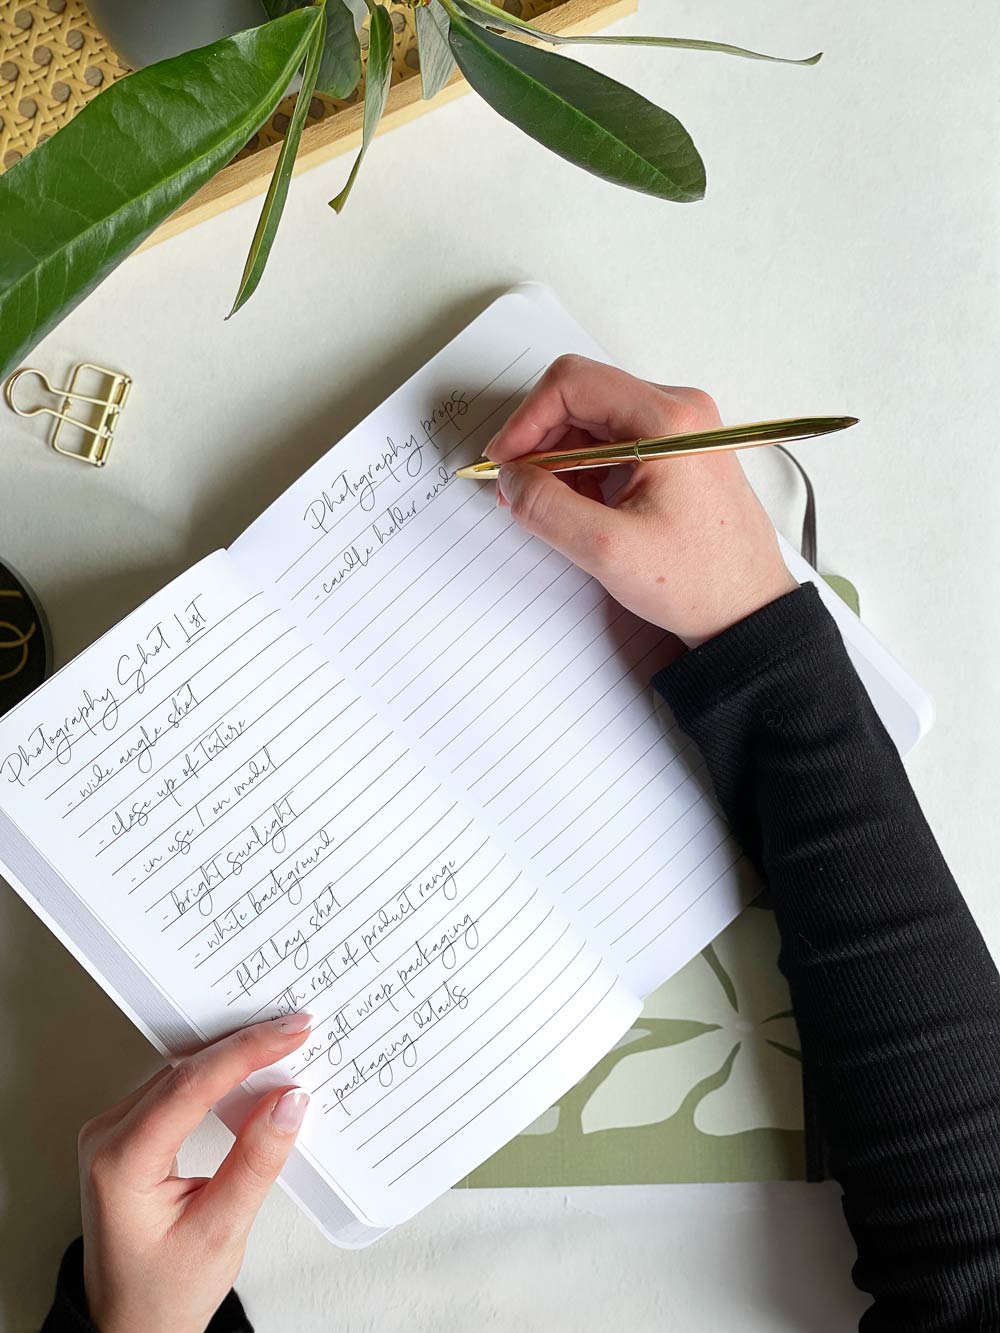 Photography Shot List
- wide angle shot
- close up of texture
- in use / on model
- bright sunlight
- white background
- flat lay shot
with rest of product range
- in gift wrap packaging
- packaging details
Photography props
- candle holder and